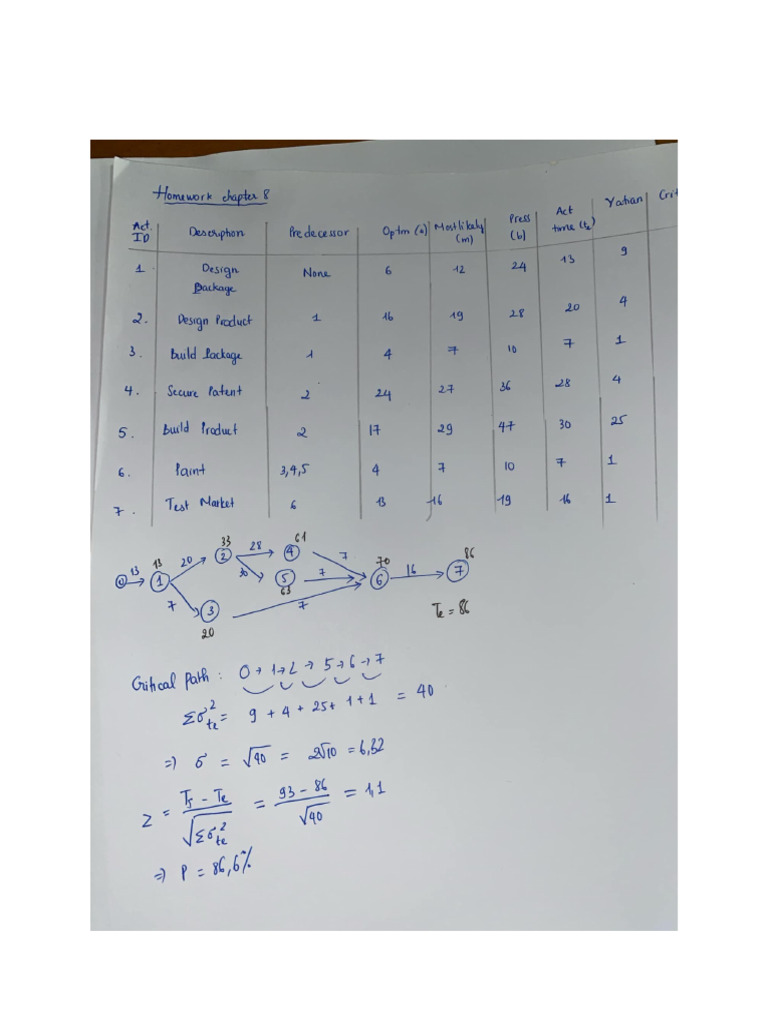 Homework chapter 8
Act. ID Description Predecessor Optm (a) Most likely (m) Press (b) Act time (te) Crit
1 Design Package None 6 12 24 13 9
2. Design Product 1 16 19 28 20 4
3. Build Package 1 4 7 10 7 1
4. Secure Patent 2 24 27 36 28 4
5. Build Product 2 17 29 47 30 25
6. Paint 3,4,5 4 7 10 7 1
7. Test Market 6 13 16 19 16 1
33 28 61
13 13 20 2 4 7 70 86
0 1 30 5 7 6 16 7
7 3 63
20 7
Te = 86
Critical Path : 0 → 1 → 2 → 5 → 6 → 7
Σσ²te = 9 + 4 + 25 + 1 + 1 = 40
=) σ = √40 = 2√10 = 6,32
Z = Ts - Te / √Σσ²te = 93 - 86 / √40 = 1,1
=) P = 86,6%